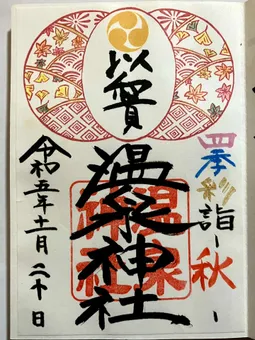 四季
詣ー秋ー
温泉神社
温泉
神社
令和五年十一月二十日